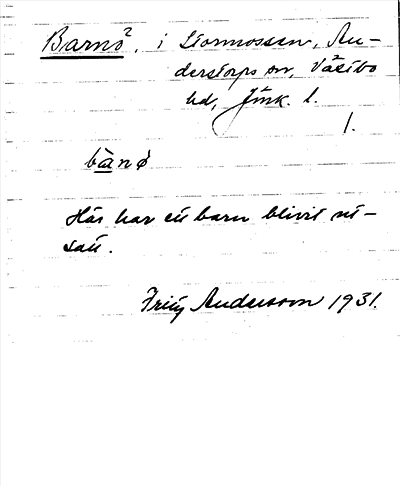 Barnö², i Stormossen, An-
derstorps sn, Västbo
hd, Jönk. l.
1.
bànø
Här har ett barn blivit ut-
satt.
Fritz Andersson 1931.